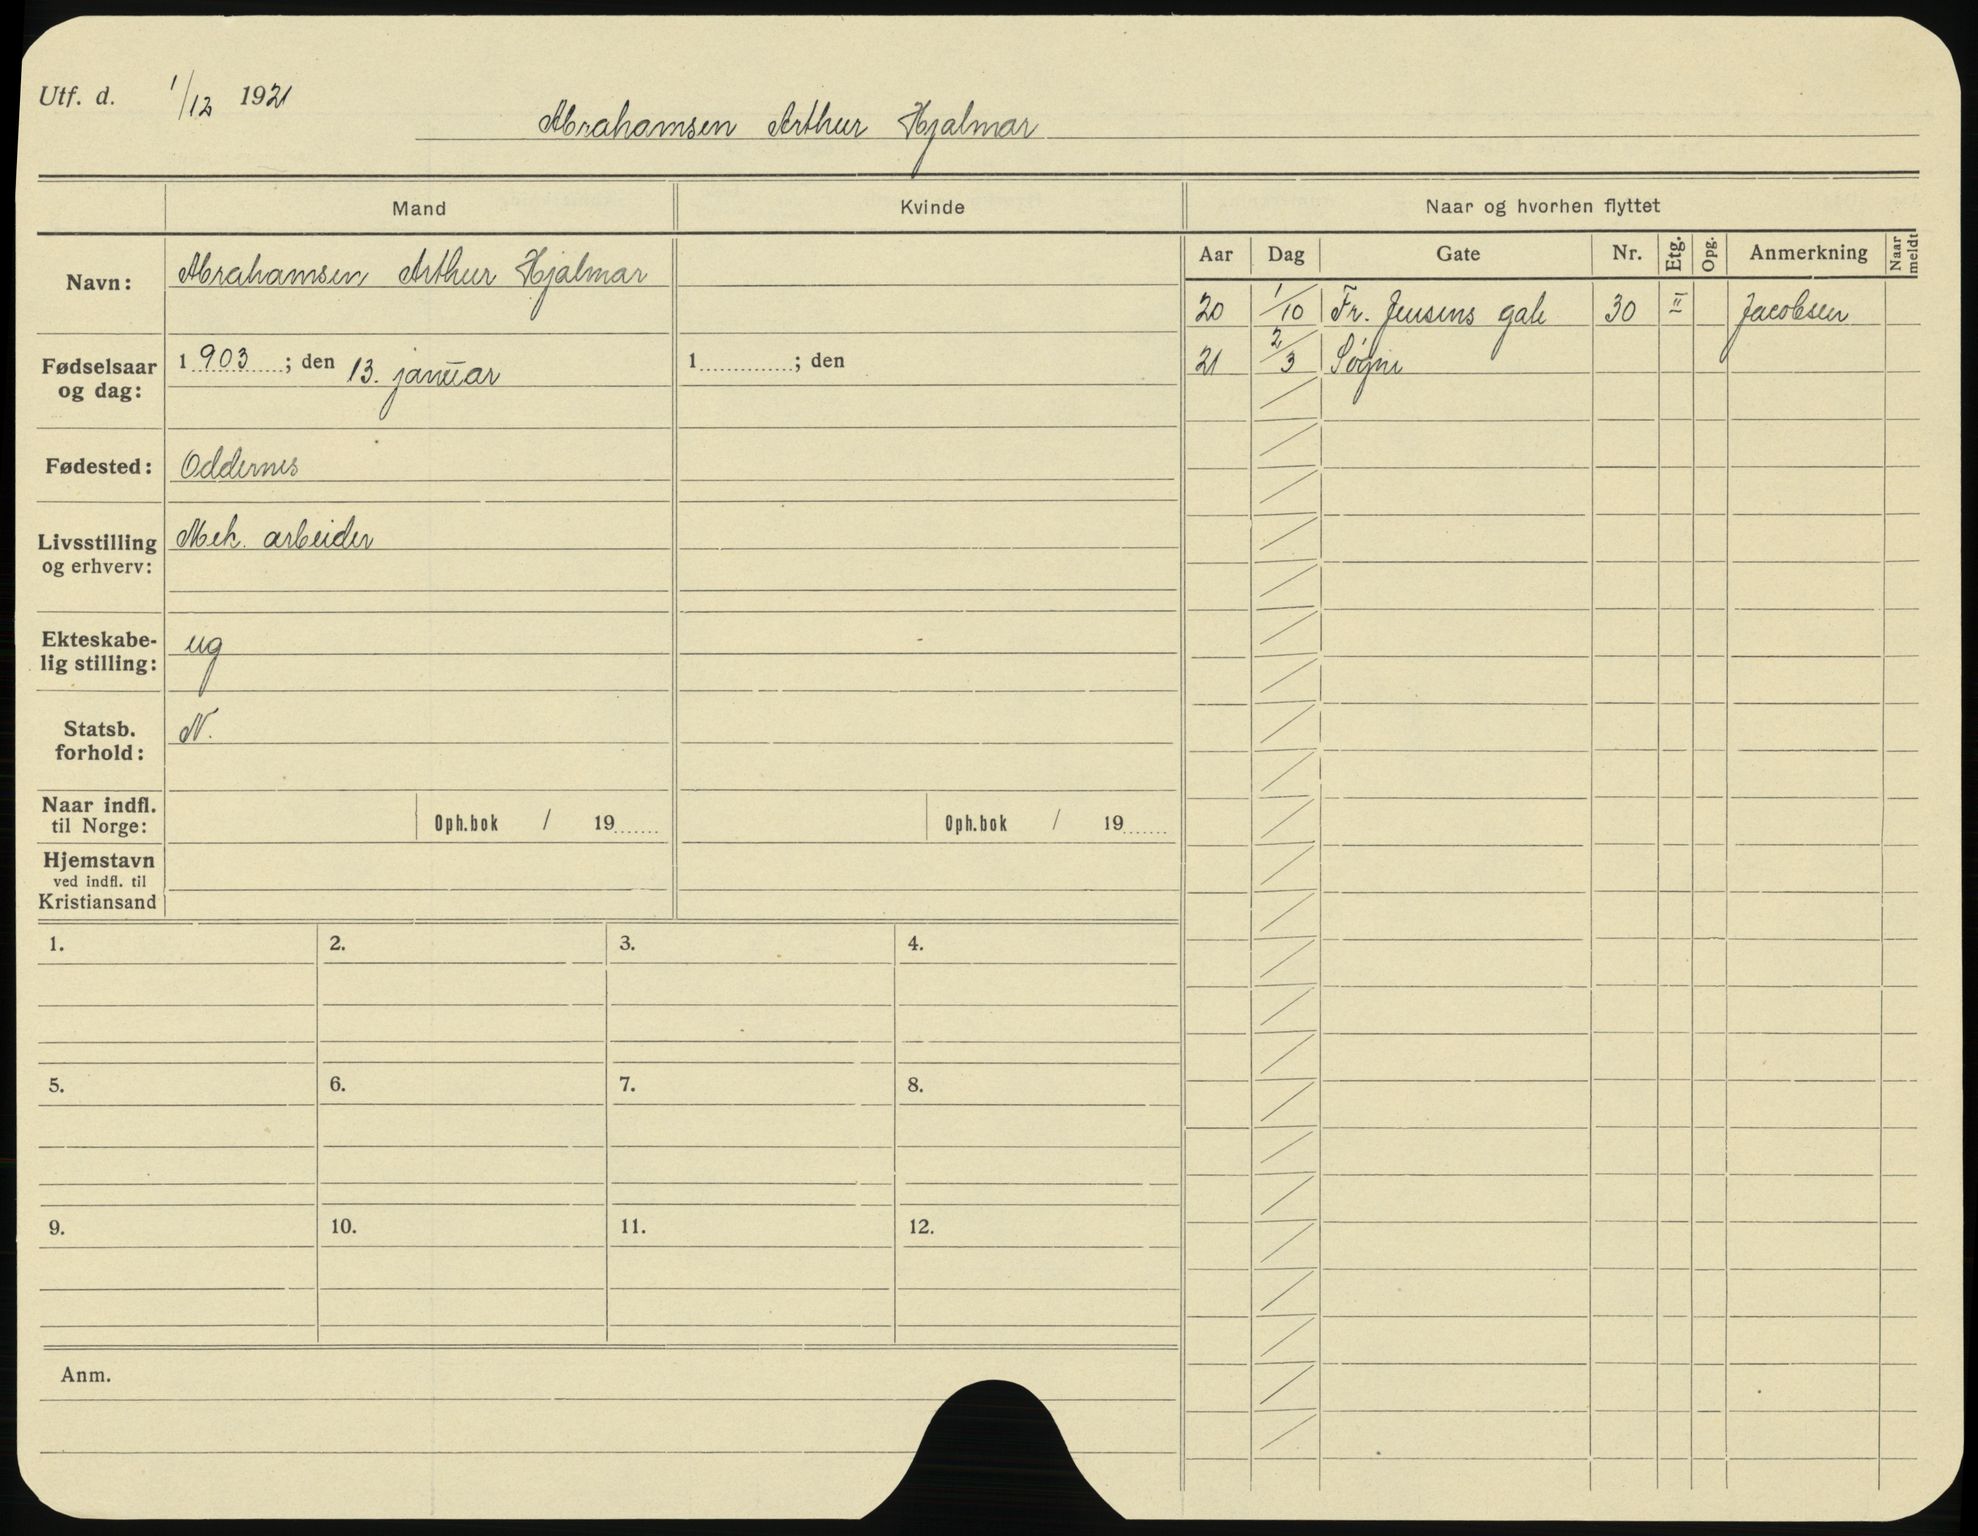 Utf. d. 1/12 1921
Abrahamsen Arthur Hjalmar
Mand Kvinde Naar og hvorhen flyttet
Aar Dag Gate Nr. Etg. Opg. Anmerkning Naar meldt
Navn: Abrahamsen Arthur Hjalmar
20 1/10 Fr. Jensens gate 30 III Jacobsen
21 2/3 Søgne
Fødselsaar
og dag:
1903; den 13. januar
1 ; den
Fødested: Oddernes
Livsstilling
og erhverv:
Mek. arbeider
Ekteskabe-
lig stilling:
ug
Statsb.
forhold:
N.
Naar indfl.
til Norge:
Oph.bok / 19
Oph.bok / 19
Hjemstavn
ved indfl. til
Kristiansand
1. 2. 3. 4.
5. 6. 7. 8.
9. 10. 11. 12.
Anm.